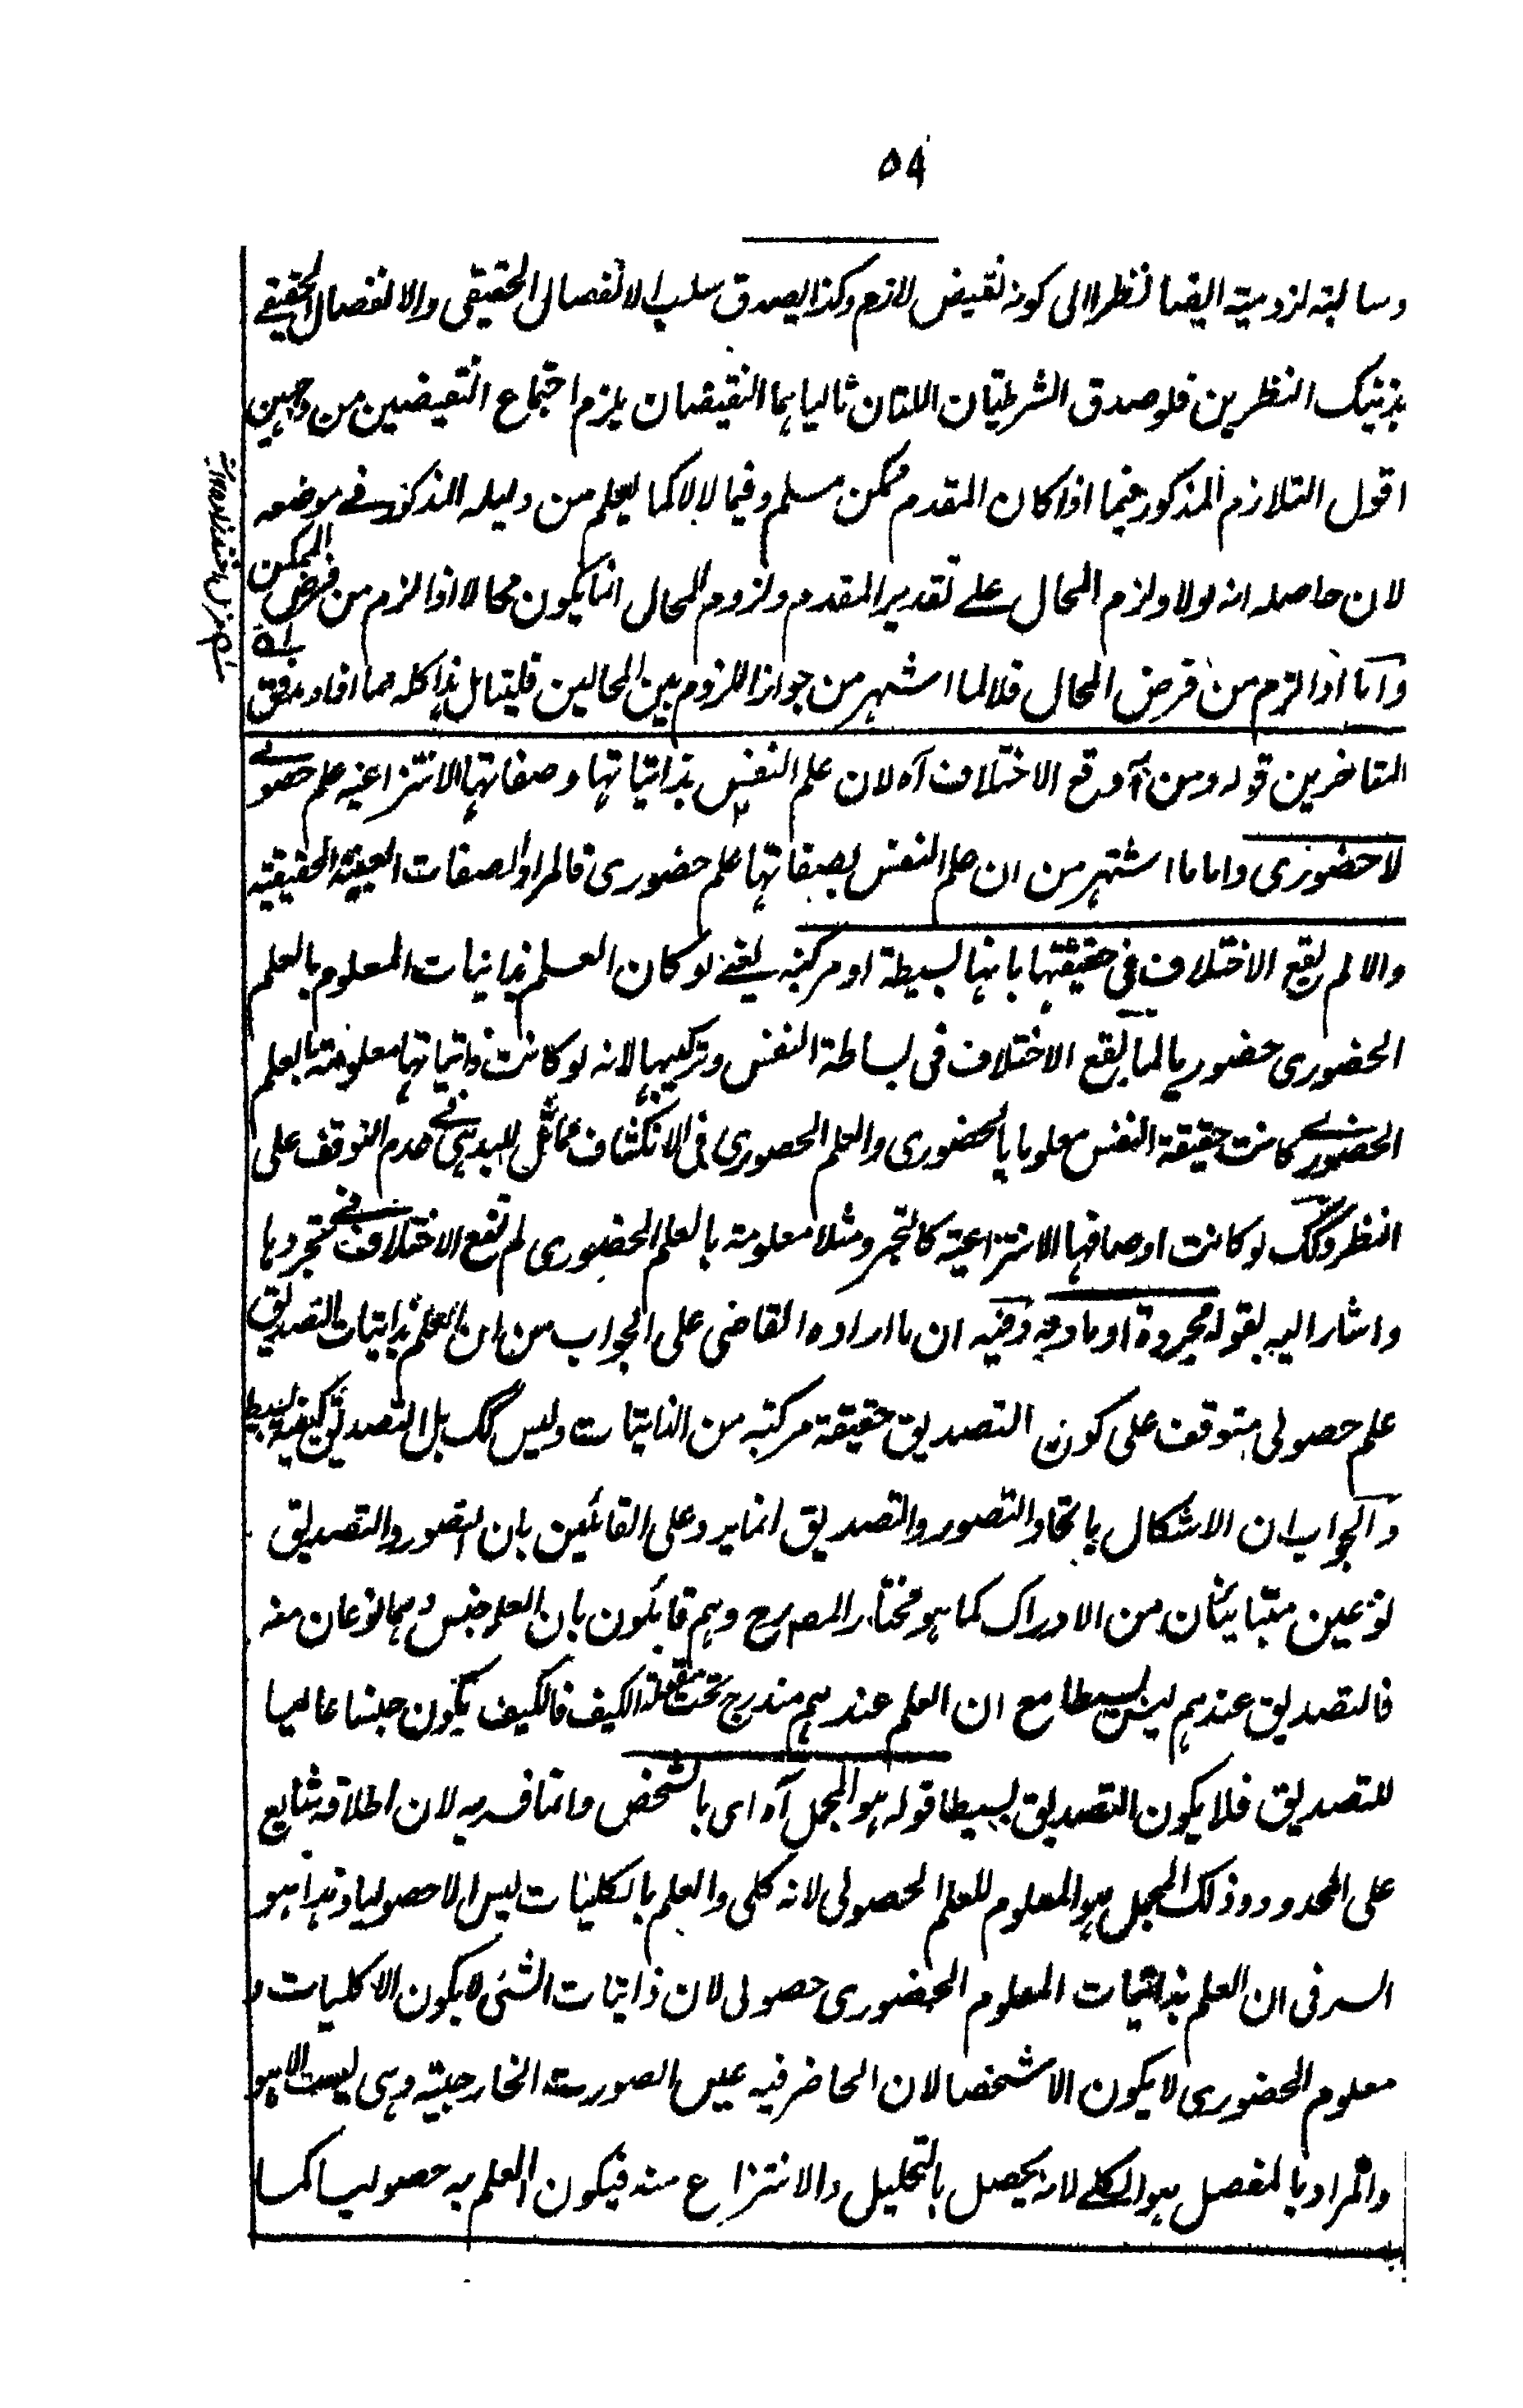 ٥٩
وسالبة لزومية ايضا نظرا الى كونه نقيض لازم وكذا يصدق سلب الانفصال الحقيقى والانفصال الحقيقے
بذينك النظرين فلو صدق الشرطيتان اللتان تالياهما النقيضان يلزم اجتماع النقيضين من وجهين
اقول التلازم المذكور فيما اذا كان المقدم ممكن مسلم وفيما لا لا كما يعلم من دليله المذكور فے موضعه
لان حاصله انه لولا ولزم المحال علے تقدير المقدم ولزوم المحال انما يكون محالا اذا لزم من فرض الممكن
واما اذا لزم من فرض المحال فلا لما اشتهر من جواز اللزوم بين المحالين فليتامل هذا كله مما افاد مدقق
المتاخرين قوله ومن ثم وقع الاختلاف آه لان علم النفس بذاتياتها وصفاتها الانتزاعية علم حصولے
لا حضورى واما ما اشتهر من ان علم النفس بصفاتها علم حضورى فالمراد الصفات العينية الحقيقية
والا لم يقع الاختلاف فى حقيقتها بانها بسيطة او مركبة يعنے لو كان العلم بذاتيات المعلوم بالعلم
الحضورى حضوريا لما يقع الاختلاف فى بساطة النفس وتركيبها لانه لو كانت ذاتياتها معلومة بالعلم
الحضورے كانت حقيقة النفس معلوما بالحضورى والعلم الحصورى فى الانكشاف مماثل للبديهى فے عدم التوقف على
النظر وكك لو كانت اوصافها الانتزاعية كالتجرد مثلا معلومة بالعلم الحضورى لم تقع الاختلاف فے تجردها
واشار اليه بقوله مجردة او مادية وفيه ان ما اراده القاضى على الجواب من ان العلم بذاتيات التصديق
علم حصولى متوقف على كون التصديق حقيقة مركبة من الذاتيات وليس كك بل التصديق كيفية بسيط
والجواب ان الاشكال باتحاد التصور والتصديق انما يرد على القائلين بان التصور والتصديق
نوعين متباينان من الادراك كما هو مختار المصرح وهم قايلون بان العلم جنس وهما نوعان منه
فالتصديق عندهم ليس بسيطا مع ان العلم عندهم مندرج تحت مقولة الكيف فالكيف يكون جنسا عاليا
للتصديق فلا يكون التصديق بسيطا قوله هو المجمل آه اى بالشخص وانما فسر به لان اطلاقه شايع
على المحدود وذلك المجمل هو المعلوم للعلم الحصولى لانه كلى والعلم بالكليات ليس الا حصوليا وهذا هو
السر فى ان العلم بذاتيات المعلوم الحضورى حصولى لان ذاتيات الشئ لا يكون الا كليات و
معلوم الحضورى لا يكون الا شخصا لان الحاضر فيه عين الصورة الخارجية وهى ليست الا هو
والمراد بالمفصل هو الكلے لانه يحصل بالتحليل والانتزاع منه فيكون العلم به حصوليا كما